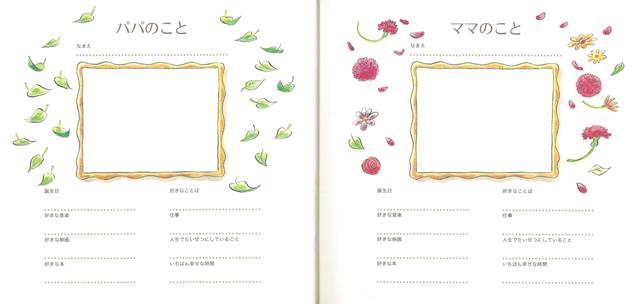 パパのこと
なまえ
誕生日
好きなことば
好きな音楽
仕事
好きな映画
人生でたいせつにしていること
好きな本
いちばん幸せな時間
ママのこと
なまえ
誕生日
好きなことば
好きな音楽
仕事
好きな映画
人生でたいせつにしていること
好きな本
いちばん幸せな時間